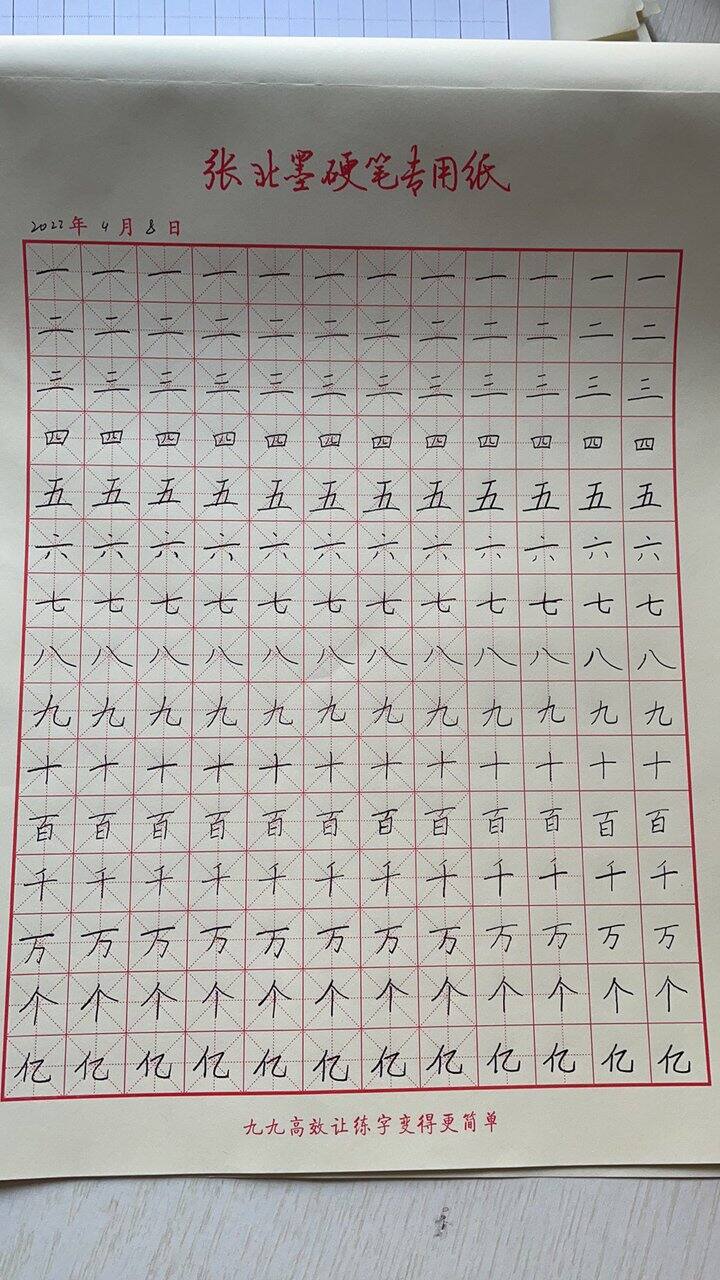 张北墨硬笔专用纸
2022年4月8日
一一一一一一一一一一一一
二二二二二二二二二二二二
三三三三三三三三三三三三
四四四四四四四四四四四四
五五五五五五五五五五五五
六六六六六六六六六六六六
七七七七七七七七七七七七
八八八八八八八八八八八八
九九九九九九九九九九九九
十十十十十十十十十十十十
百百百百百百百百百百百百
千千千千千千千千千千千千
万万万万万万万万万万万万
个个个个个个个个个个个个
亿亿亿亿亿亿亿亿亿亿亿亿
九九高效让练字变得更简单